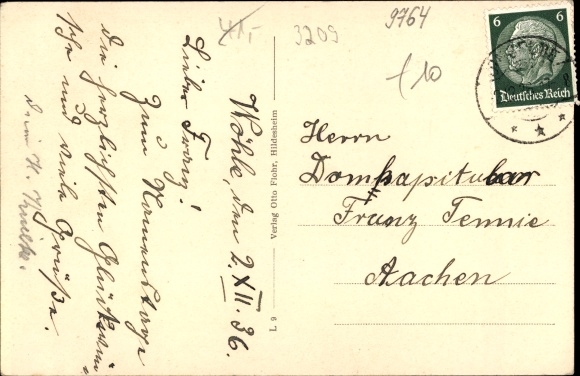 41,-
3209
9764
10
6 6
Deutsches Reich
Wöhle, den 2.XII.36.
Lieber Franz!
Zum Namenstage
die herzlichsten Glückwün
sche und viele Grüße.
Dein H.
L 9 Verlag Otto Flohr, Hildesheim
Herrn
Domkapitular
Franz Tennie
Aachen